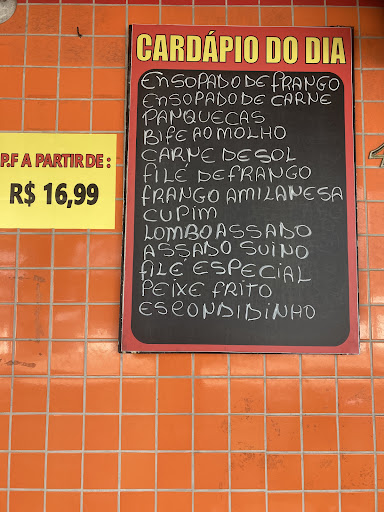 CARDÁPIO DO DIA
ENSOPADO DE FRANGO
ENSOPADO DE CARNE
PANQUECAS
BIFE AO MOLHO
CARNE DE SOL
FILE DE FRANGO
FRANGO A MILANESA
CUPIM
LOMBO ASSADO
ASSADO SUINO
FILE ESPECIAL
PEIXE FRITO
ESCONDIDINHO
P.F A PARTIR DE :
R$ 16,99